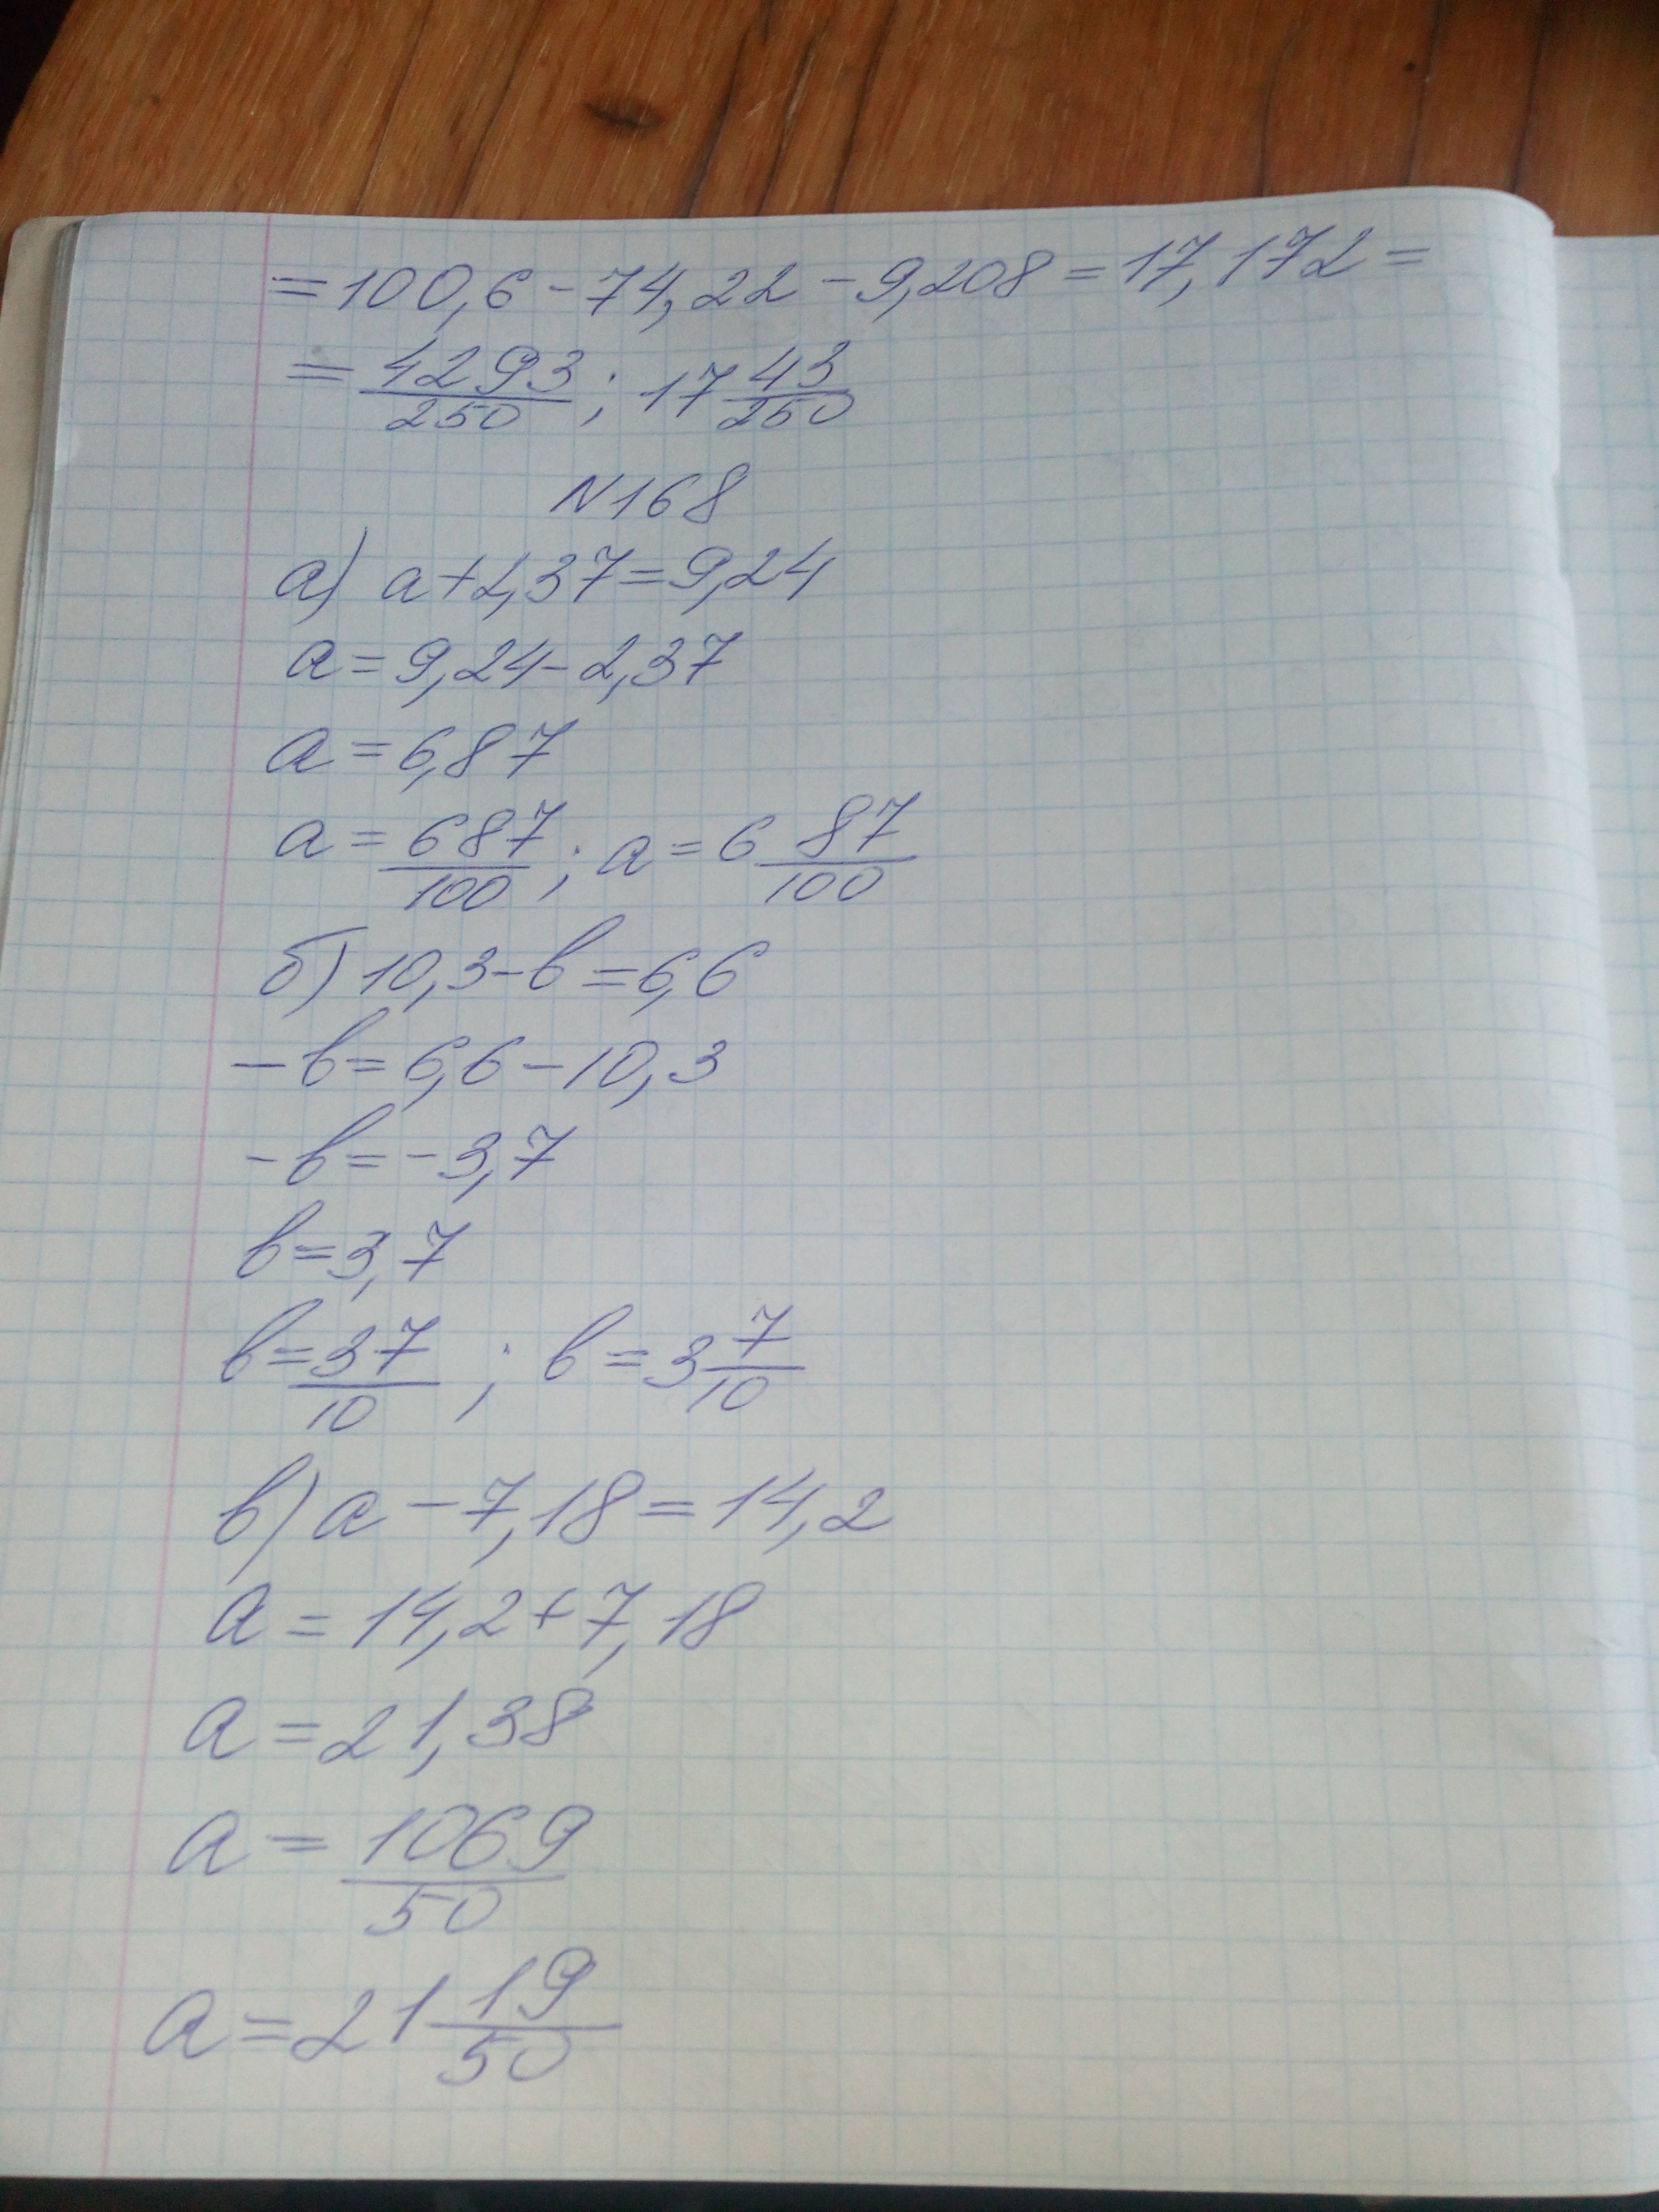 =100,6-74,22-9,208=17,172=
=4293/250; 17 43/250
N168
а) a+2,37=9,24
a=9,24-2,37
a=6,87
a=687/100; a=6 87/100
б) 10,3-b=6,6
-b=6,6-10,3
-b=-3,7
b=3,7
b=37/10; b=3 7/10
в) a-7,18=14,2
a=14,2+7,18
a=21,38
a=1069/50
a=21 19/50